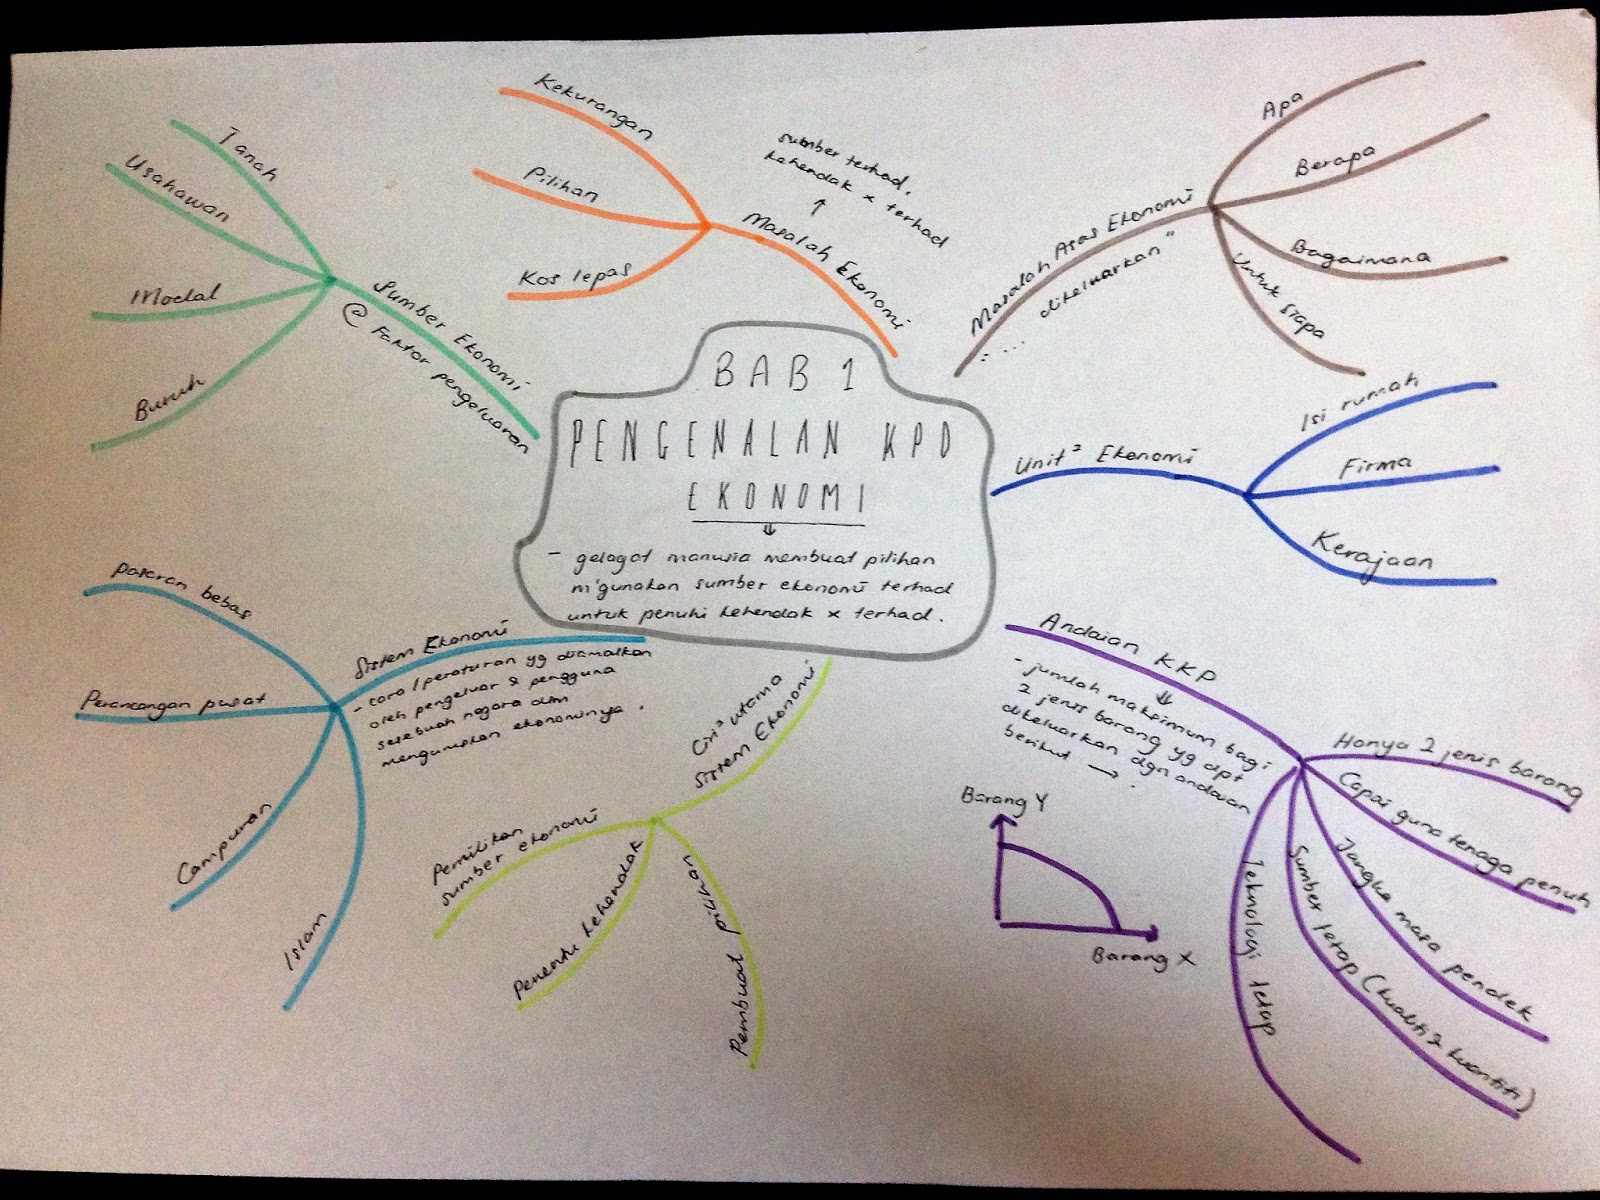 BAB 1
PENGENALAN KPD
EKONOMI
↓
- gelagat manusia membuat pilihan
m'gunakan sumber ekonomi terhad
untuk penuhi kehendak x terhad.
Sumber Ekonomi
@ Faktor pengeluaran
Tanah
Usahawan
Modal
Buruh
Masalah Ekonomi
↑
sumber terhad,
kehendak x terhad
Kekurangan
Pilihan
Kos lepas
Masalah Asas Ekonomi
: ... dikeluarkan"
Apa
Berapa
Bagaimana
Untuk siapa
Unit² Ekonomi
Isi rumah
Firma
Kerajaan
Andaian KKP
↓
- jumlah maksimum bagi
2 jenis barang yg dpt
dikeluarkan dgn andaian
berikut → :
Hanya 2 jenis barang
Capai guna tenaga penuh
Jangka masa pendek
Sumber tetap (kualiti & kuantiti)
Teknologi tetap
Barang Y
Barang X
Ciri² utama
Sistem Ekonomi
Pemilikan
sumber ekonomi
Penentu kehendak
Pembuat pilihan
Sistem Ekonomi
- cara / peraturan yg diamalkan
oleh pengeluar & pengguna
sesebuah negara dlm
menguruskan ekonominya.
Pasaran bebas
Perancangan pusat
Campuran
Islam